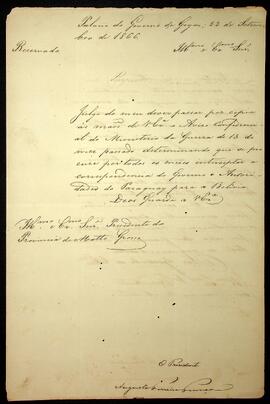 Palacio do Governo de Goyaz, 22 de Setem
bro de 1866.
Reservado
Illmo e Exmo Snr.
Julgo do meu dever passar por copia
ás mãos de V. Exa o Aviso Confidenci
al do Ministerio da Guerra de 13 do
mez passado, determinando que se pro
cure por todos os meios interceptar a
correspondencia do Governo e Autori
dades do Paraguay para a Bolivia.
Deos Guarde a V. Exa
Illmo e Exmo Snr. Presidente da
Provincia de Matto Grosso
O Presidente
Augusto Ferreira França